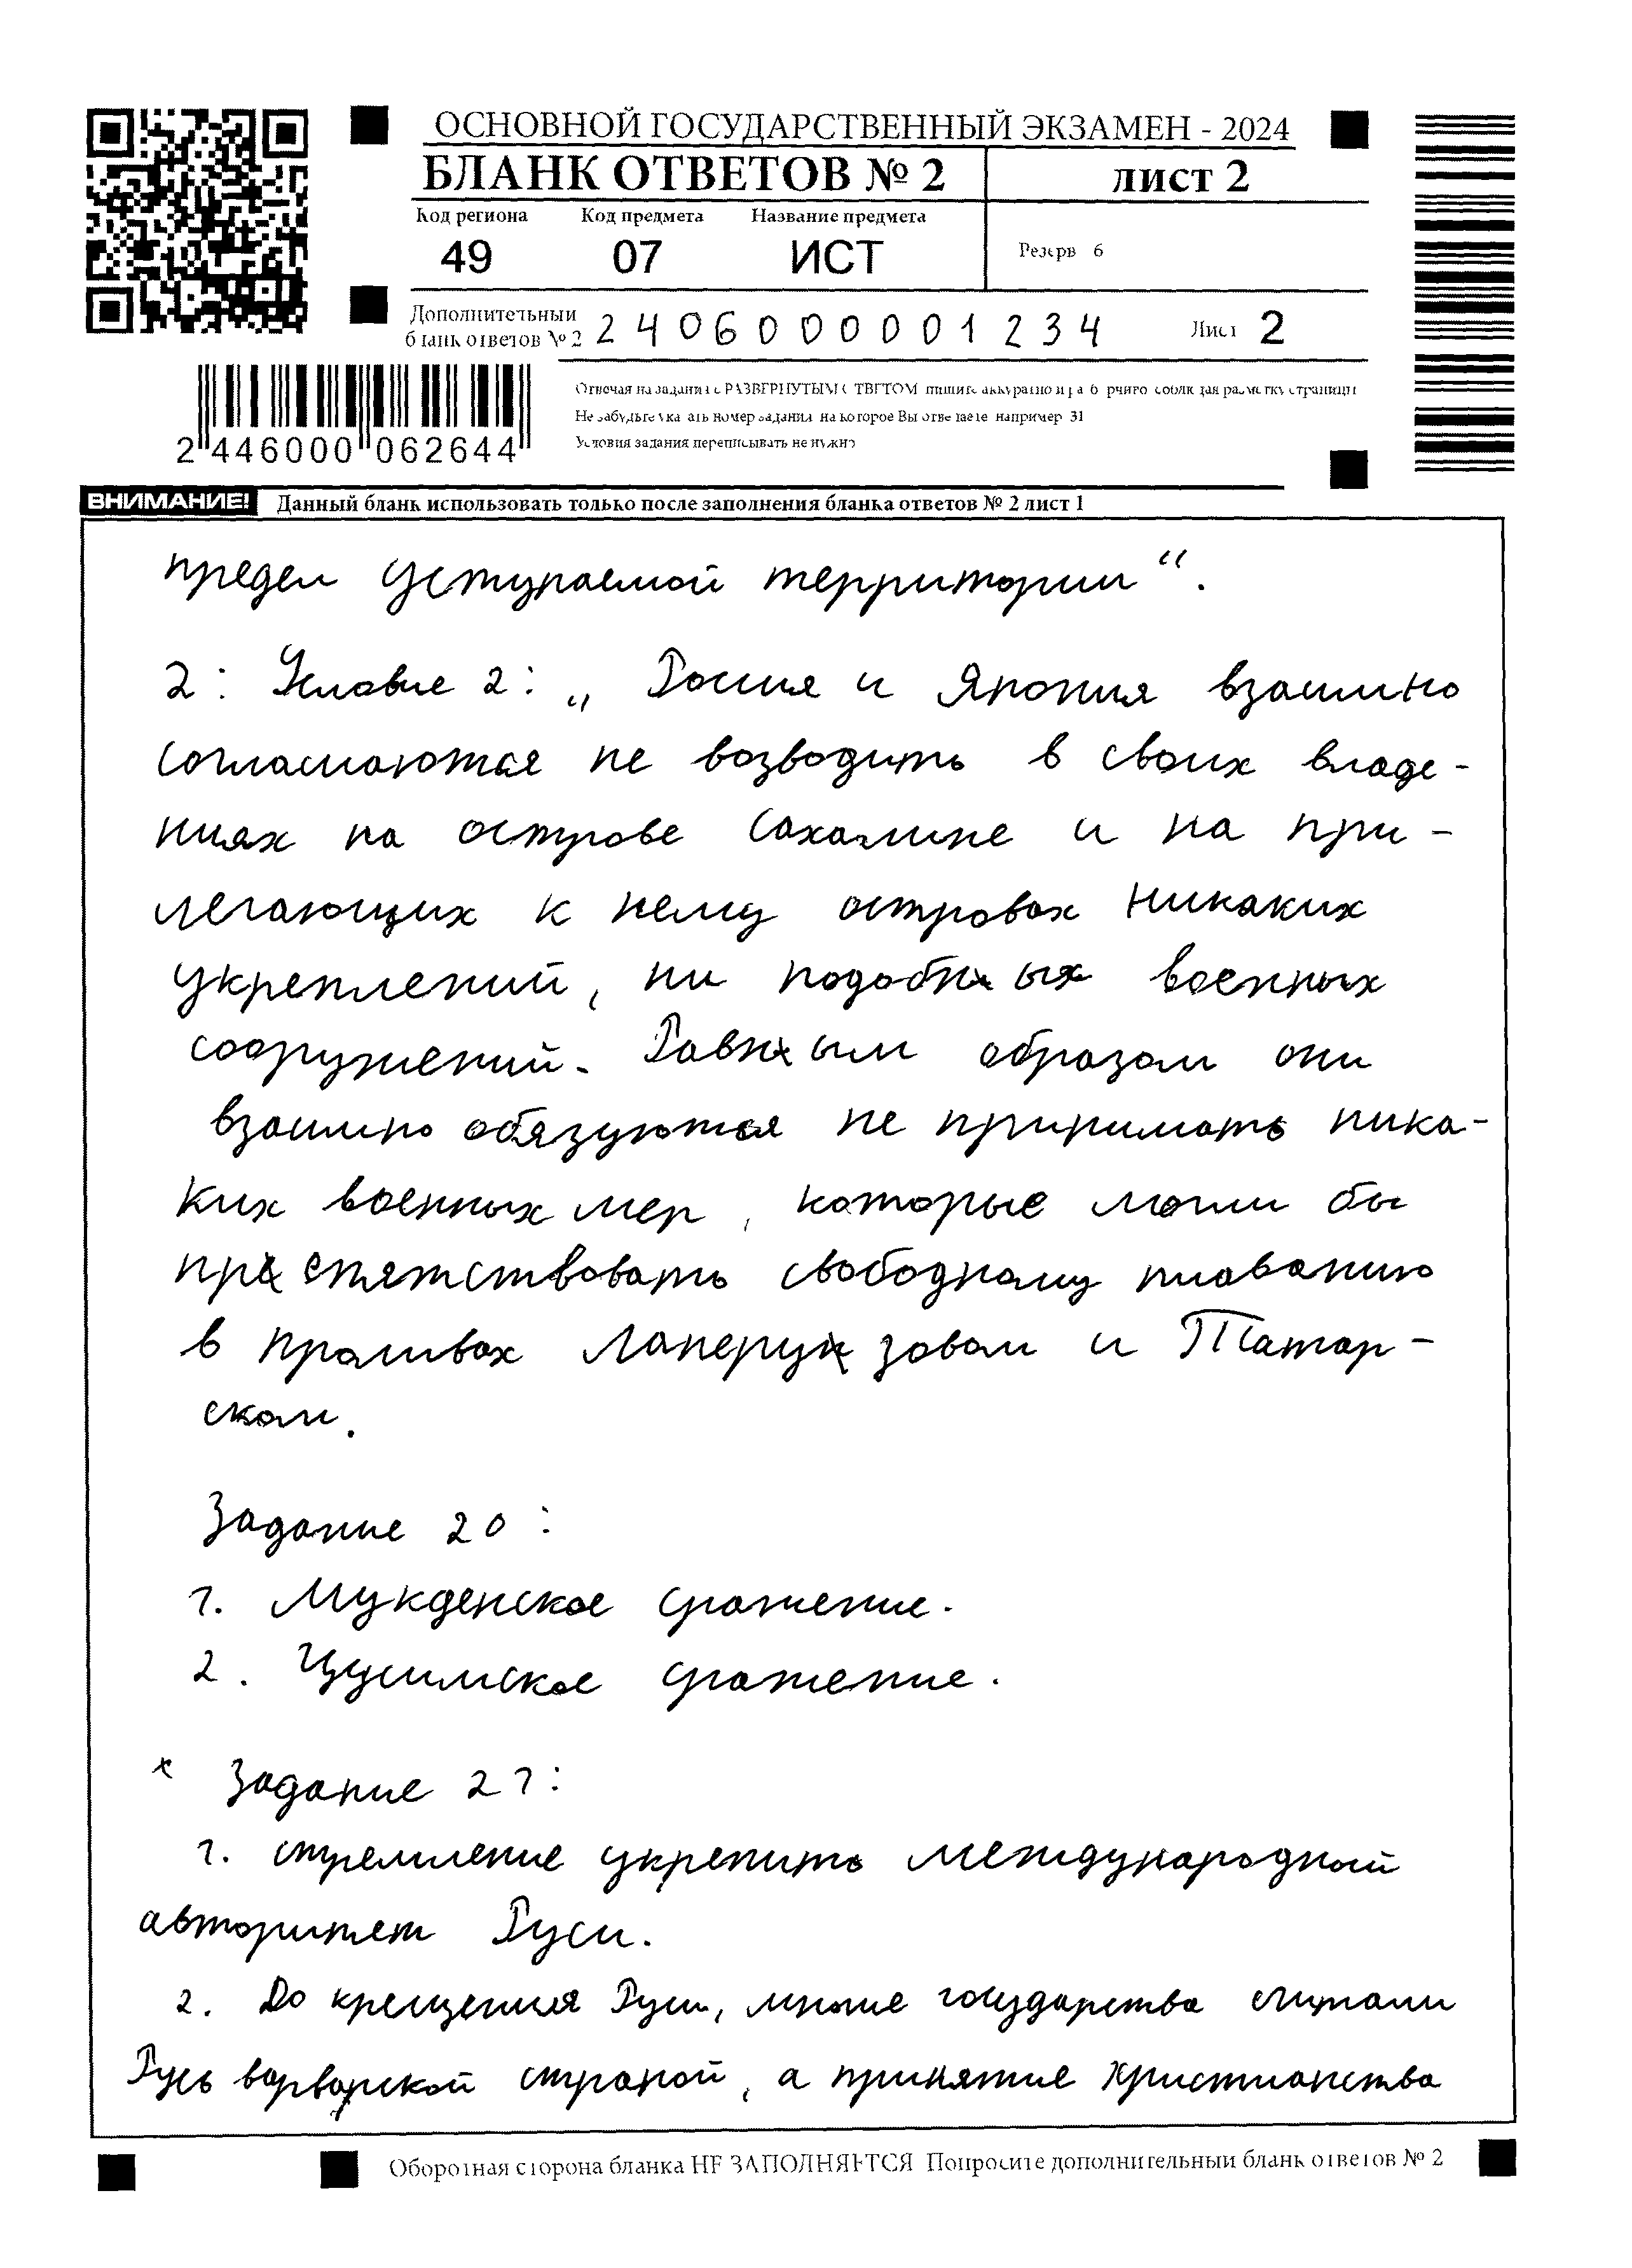 ОСНОВНОЙ ГОСУДАРСТВЕННЫЙ ЭКЗАМЕН - 2024
БЛАНК ОТВЕТОВ № 2 лист 2
Код региона Код предмета Название предмета
49 07 ИСТ Резерв 6
Дополнительный
бланк ответов № 2 2406000001234 Лист 2
Отвечая на задания с РАЗВЕРНУТЫМ ОТВЕТОМ пишите аккуратно и разборчиво соблюдая разметку страницы
Не забудьте указать номер задания на которое Вы отвечаете например 31
Условия задания переписывать не нужно
2 446000 062644
ВНИМАНИЕ! Данный бланк использовать только после заполнения бланка ответов № 2 лист 1
предел уступаемой территории“.
2: Условие 2: „ Россия и Япония взаимно
соглашаются не возводить в своих владе-
ниях на острове Сахалине и на при-
легающих к нему островах никаких
укреплений, ни подобных военных
сооружений. Равным образом они
взаимно обязуются не принимать ника-
ких военных мер, которые могли бы
препятствовать свободному плаванию
в проливах Лаперузовом и Татар-
ском.
Задание 20:
1. Мукденское сражение.
2. Цусимское сражение.
Задание 21:
1. стремление укрепить международный
авторитет Руси.
2. До крещения Руси, многие государства считали
Русь варварской страной, а принятие христианства
Оборотная сторона бланка НЕ ЗАПОЛНЯЕТСЯ Попросите дополнительный бланк ответов № 2